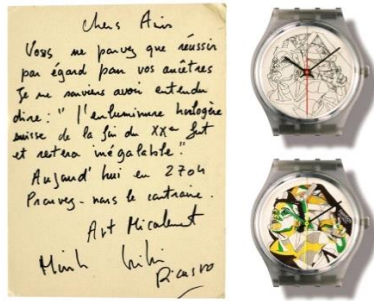 Chers Amis
Vous ne pouvez que réussir
par égard pour vos ancêtres
Je me souviens avoir entendu
dire : "l'enluminure horlogère
suisse de la fin du XXe fut
et restera inégalable."
Aujourd'hui en 2704
Prouvez-nous le contraire.
Art Micalement
Picasso